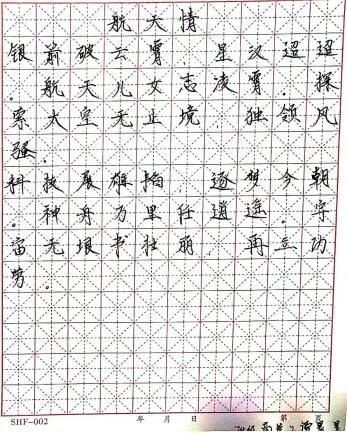 航天情
银箭破云霄,星汉迢迢
。航天儿女志凌霄。探
索太空无止境,独领风
骚。
科技展雄韬,逐梦今朝
。神舟万里任逍遥。宇
宙无垠书壮丽,再立功
劳。
SHF-002 年 月 日 第 页